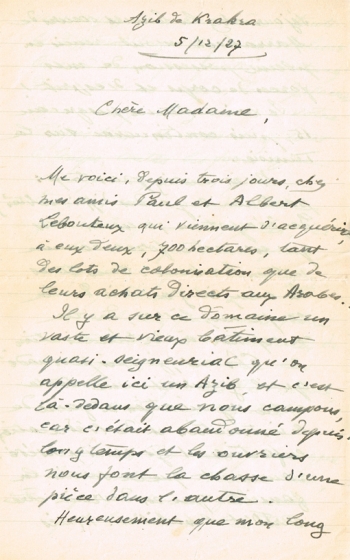 Azib de Krakra
5/12/27
Chère Madame,
Me voici, depuis trois jours, chez
mes amis Paul et Albert
Lebouteux qui viennent d'acquérir,
à eux deux, 700 hectares, tant
des lots de colonisation que de
leurs achats directs aux Arabes..
Il y a sur ce domaine un
vaste et vieux bâtiment
quasi-seigneurial qu'on
appelle ici un Azib, et c'est
là-dedans que nous campons,
car c'était abandonné depuis
longtemps et les ouvriers
nous font la chasse d'une
pièce dans l'autre.
Heureusement que mon long